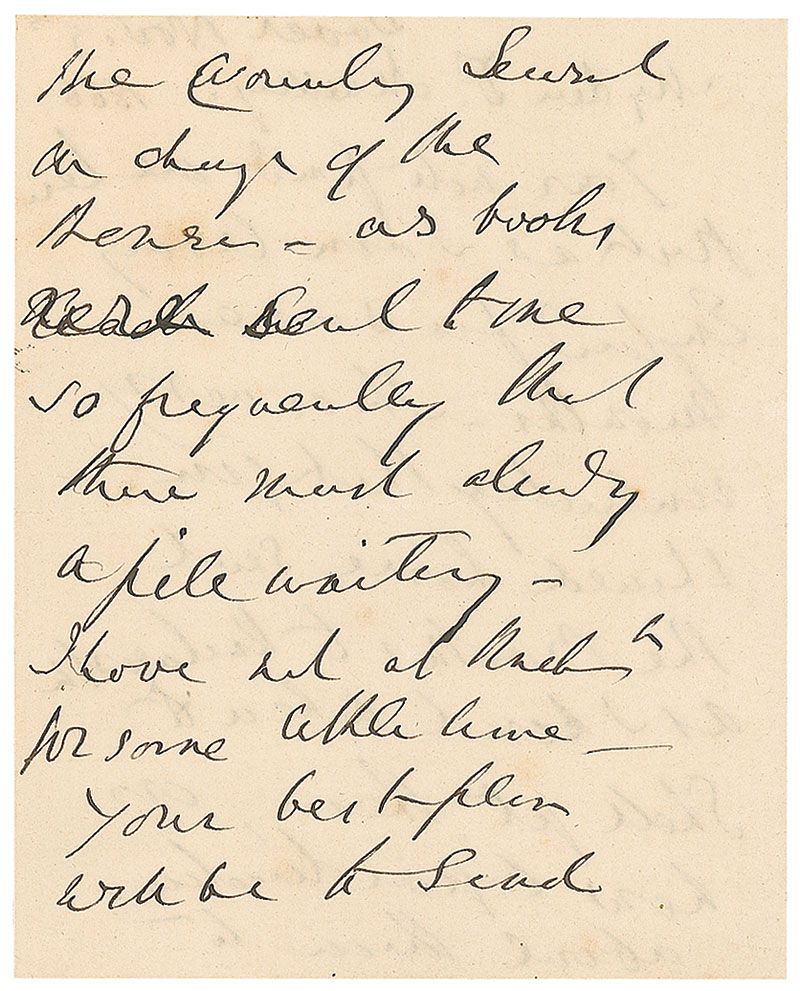 the Country Servant
in charge of the
House – as books
sent to me
so frequently that
there must already
a pile waiting –
I have not at
for some little time –
Your best plan
will be to Send